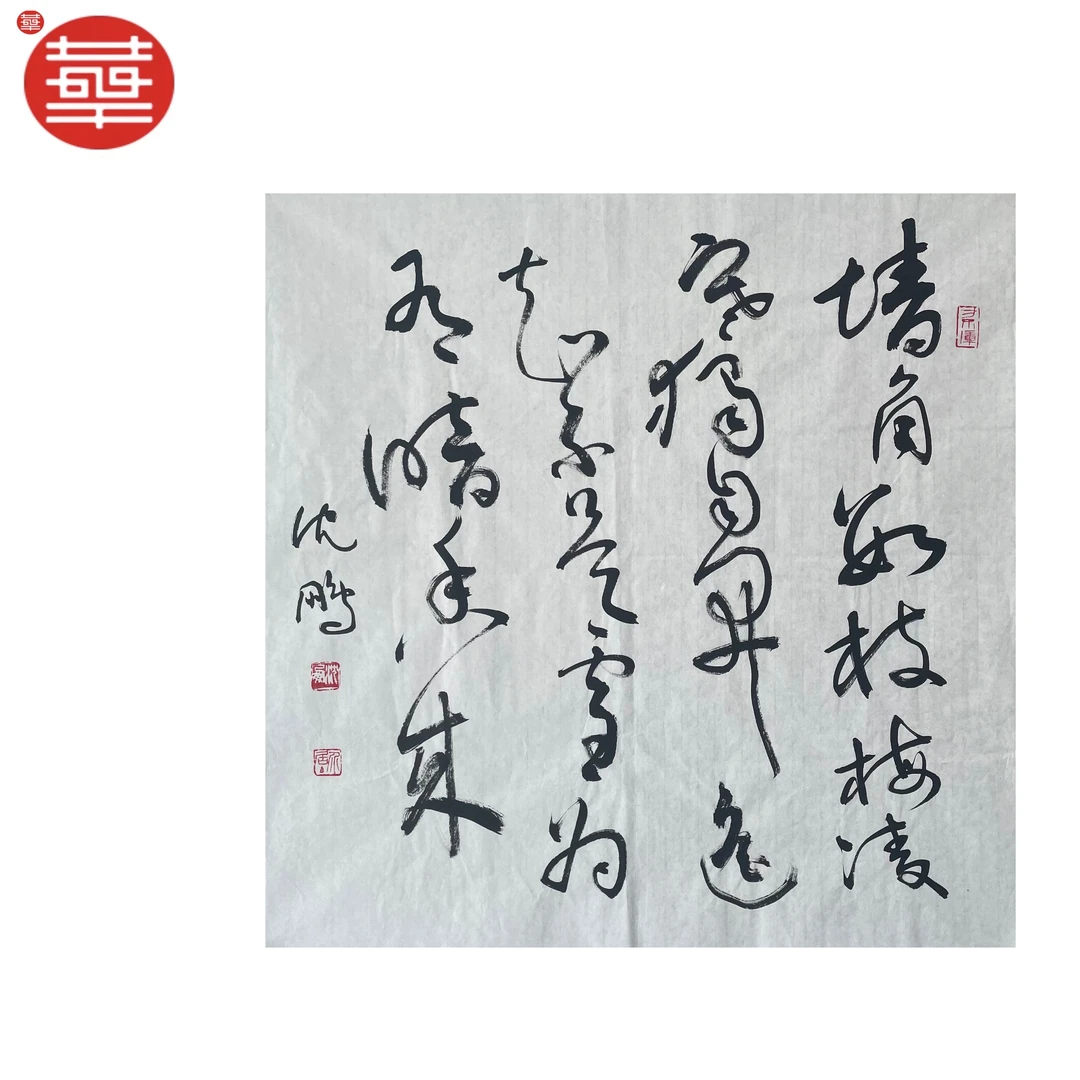 華
墙角数枝梅凌
寒獨自開遥
知不是雪为
有暗香来
沈鹏